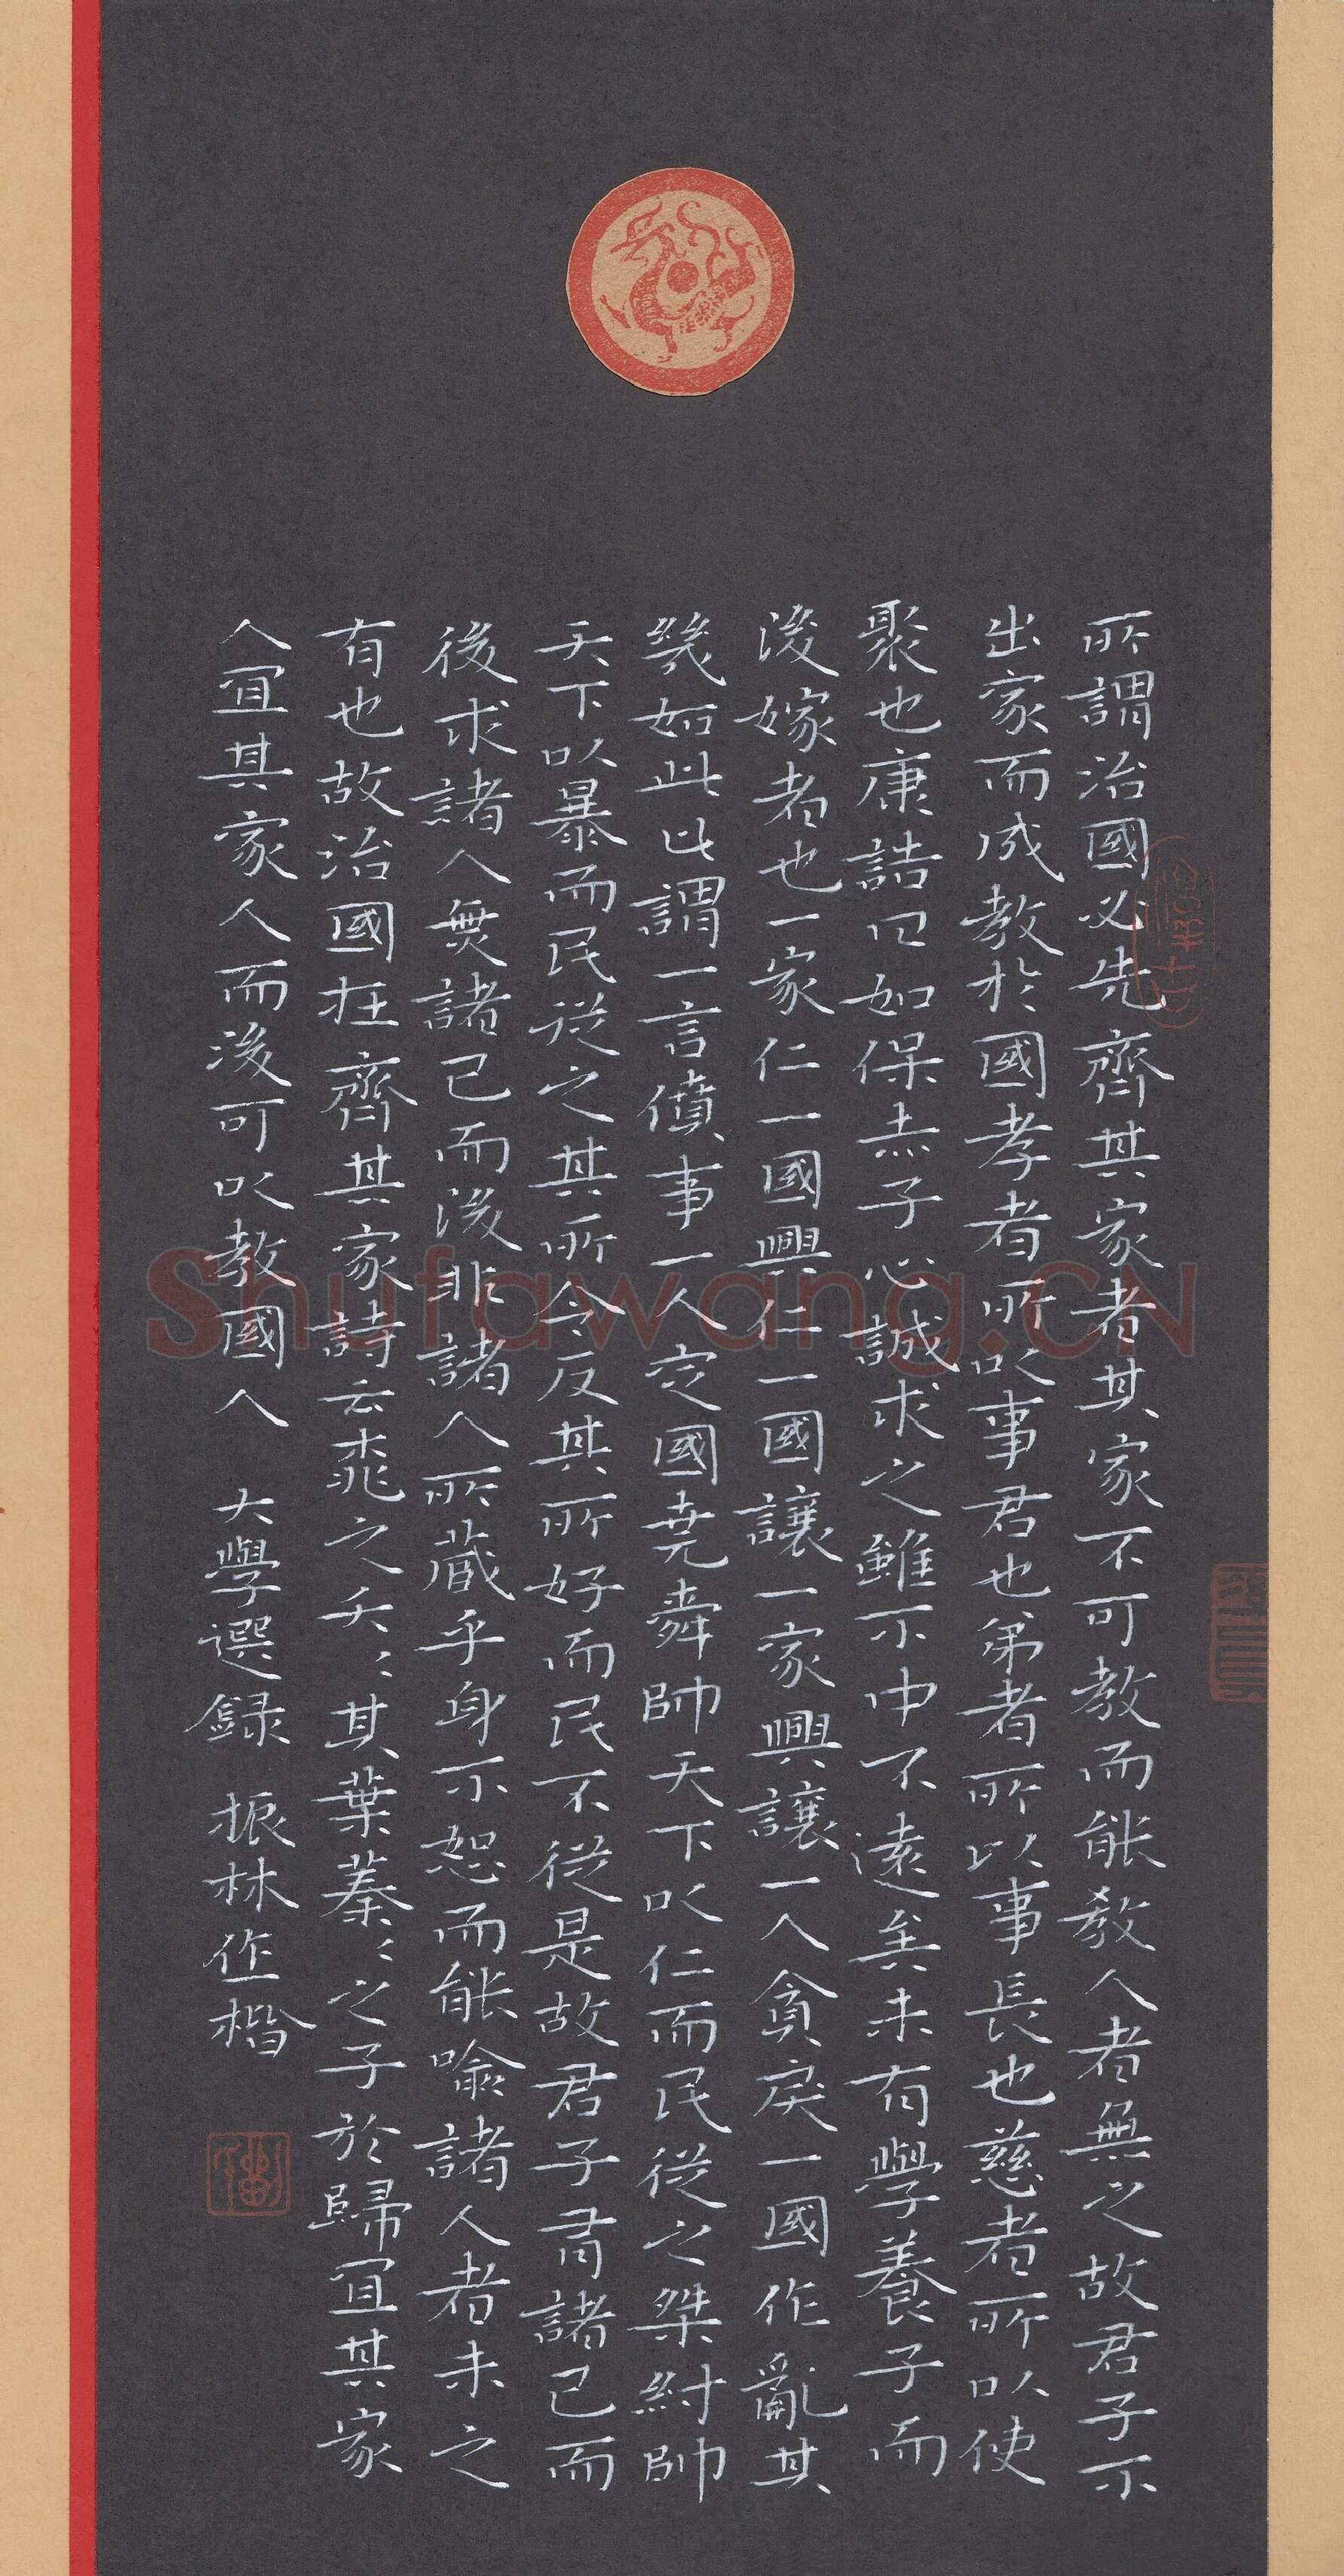 所謂治國必先齊其家者其家不可教而能教人者無之故君子不
出家而成教於國孝者所以事君也弟者所以事長也慈者所以使
聚也康誥曰如保赤子心誠求之雖不中不遠矣未有學養子而
後嫁者也一家仁一國興仁一國讓一家興讓一人貪戾一國作亂其
幾如此此謂一言僨事一人定國堯舜帥天下以仁而民從之桀紂帥
天下以暴而民從之其所令反其所好而民不從是故君子有諸己而
後求諸人無諸己而後非諸人所藏乎身不恕而能喻諸人者未之
有也故治國在齊其家詩云桃之夭〻其葉蓁〻之子於歸宜其家
人宜其家人而後可以教國人 大學選錄 振林作楷
Shufawang.CN